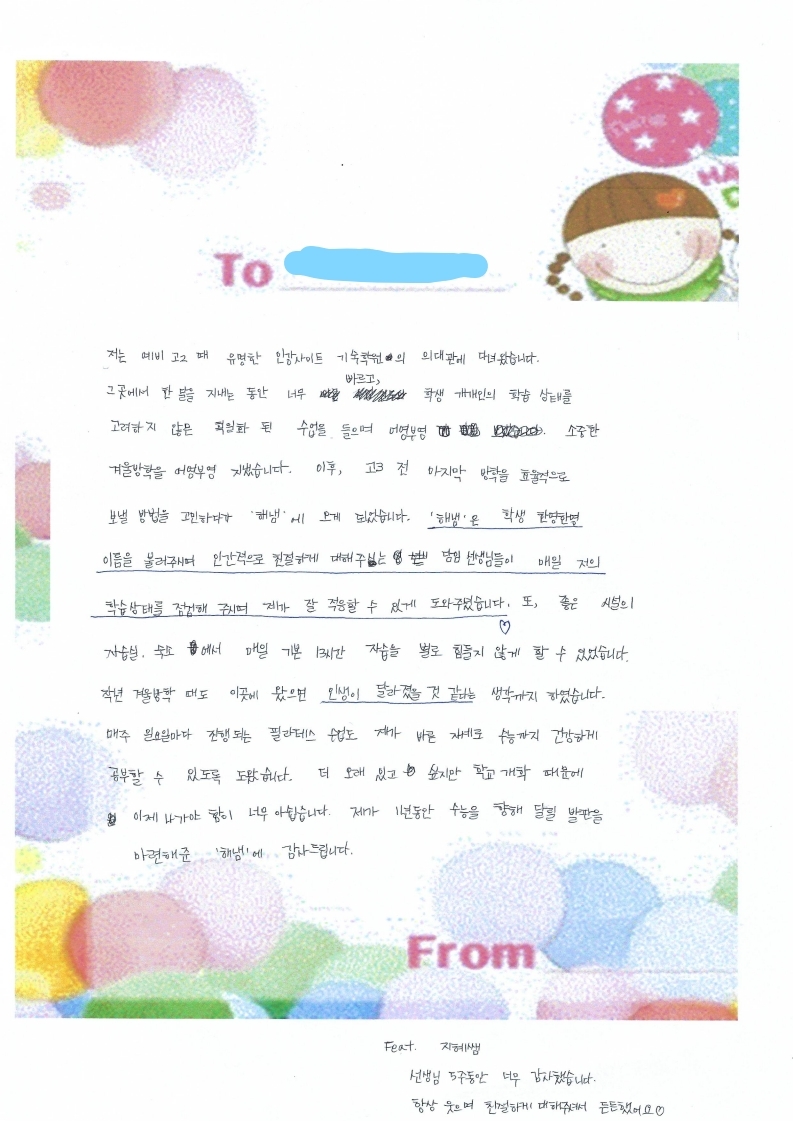 To
저는 예비 고2 때 유명한 인강사이트 기숙학원의 의대관에 다녀왔습니다.
그곳에서 한 달을 지내는 동안 너무 빠르고, 학생 개개인의 학습 상태를
고려하지 않은 획일화 된 수업을 들으며 어영부영 소중한
겨울방학을 어영부영 지냈습니다. 이후, 고3 전 마지막 방학을 효율적으로
보낼 방법을 고민하다가 '해냄'에 오게 되었습니다. '해냄'은 학생 한명한명
이름을 불러주시며 인간적으로 친절하게 대해주시는 담임 선생님들이 매일 저의
학습상태를 점검해 주시며 제가 잘 적응할 수 있게 도와주셨습니다. 또, 좋은 시설의
♡
자습실, 숙소에서 매일 기본 13시간 자습을 별로 힘들지 않게 할 수 있었습니다.
작년 겨울방학 때도 이곳에 왔으면 인생이 달라졌을 것 같다는 생각까지 하였습니다.
매주 월요일마다 진행되는 필라테스 수업도 제가 바른 자세로 수능까지 건강하게
공부할 수 있도록 도왔습니다. 더 오래 있고 싶지만 학교 개학 때문에
이제 나가야 함이 너무 아쉽습니다. 제가 1년동안 수능을 향해 달릴 발판을
마련해준 '해냄'에 감사드립니다.
From
Feat. 지혜쌤
선생님 5주동안 너무 감사했습니다.
항상 웃으며 친절하게 대해주셔서 든든했어요♡